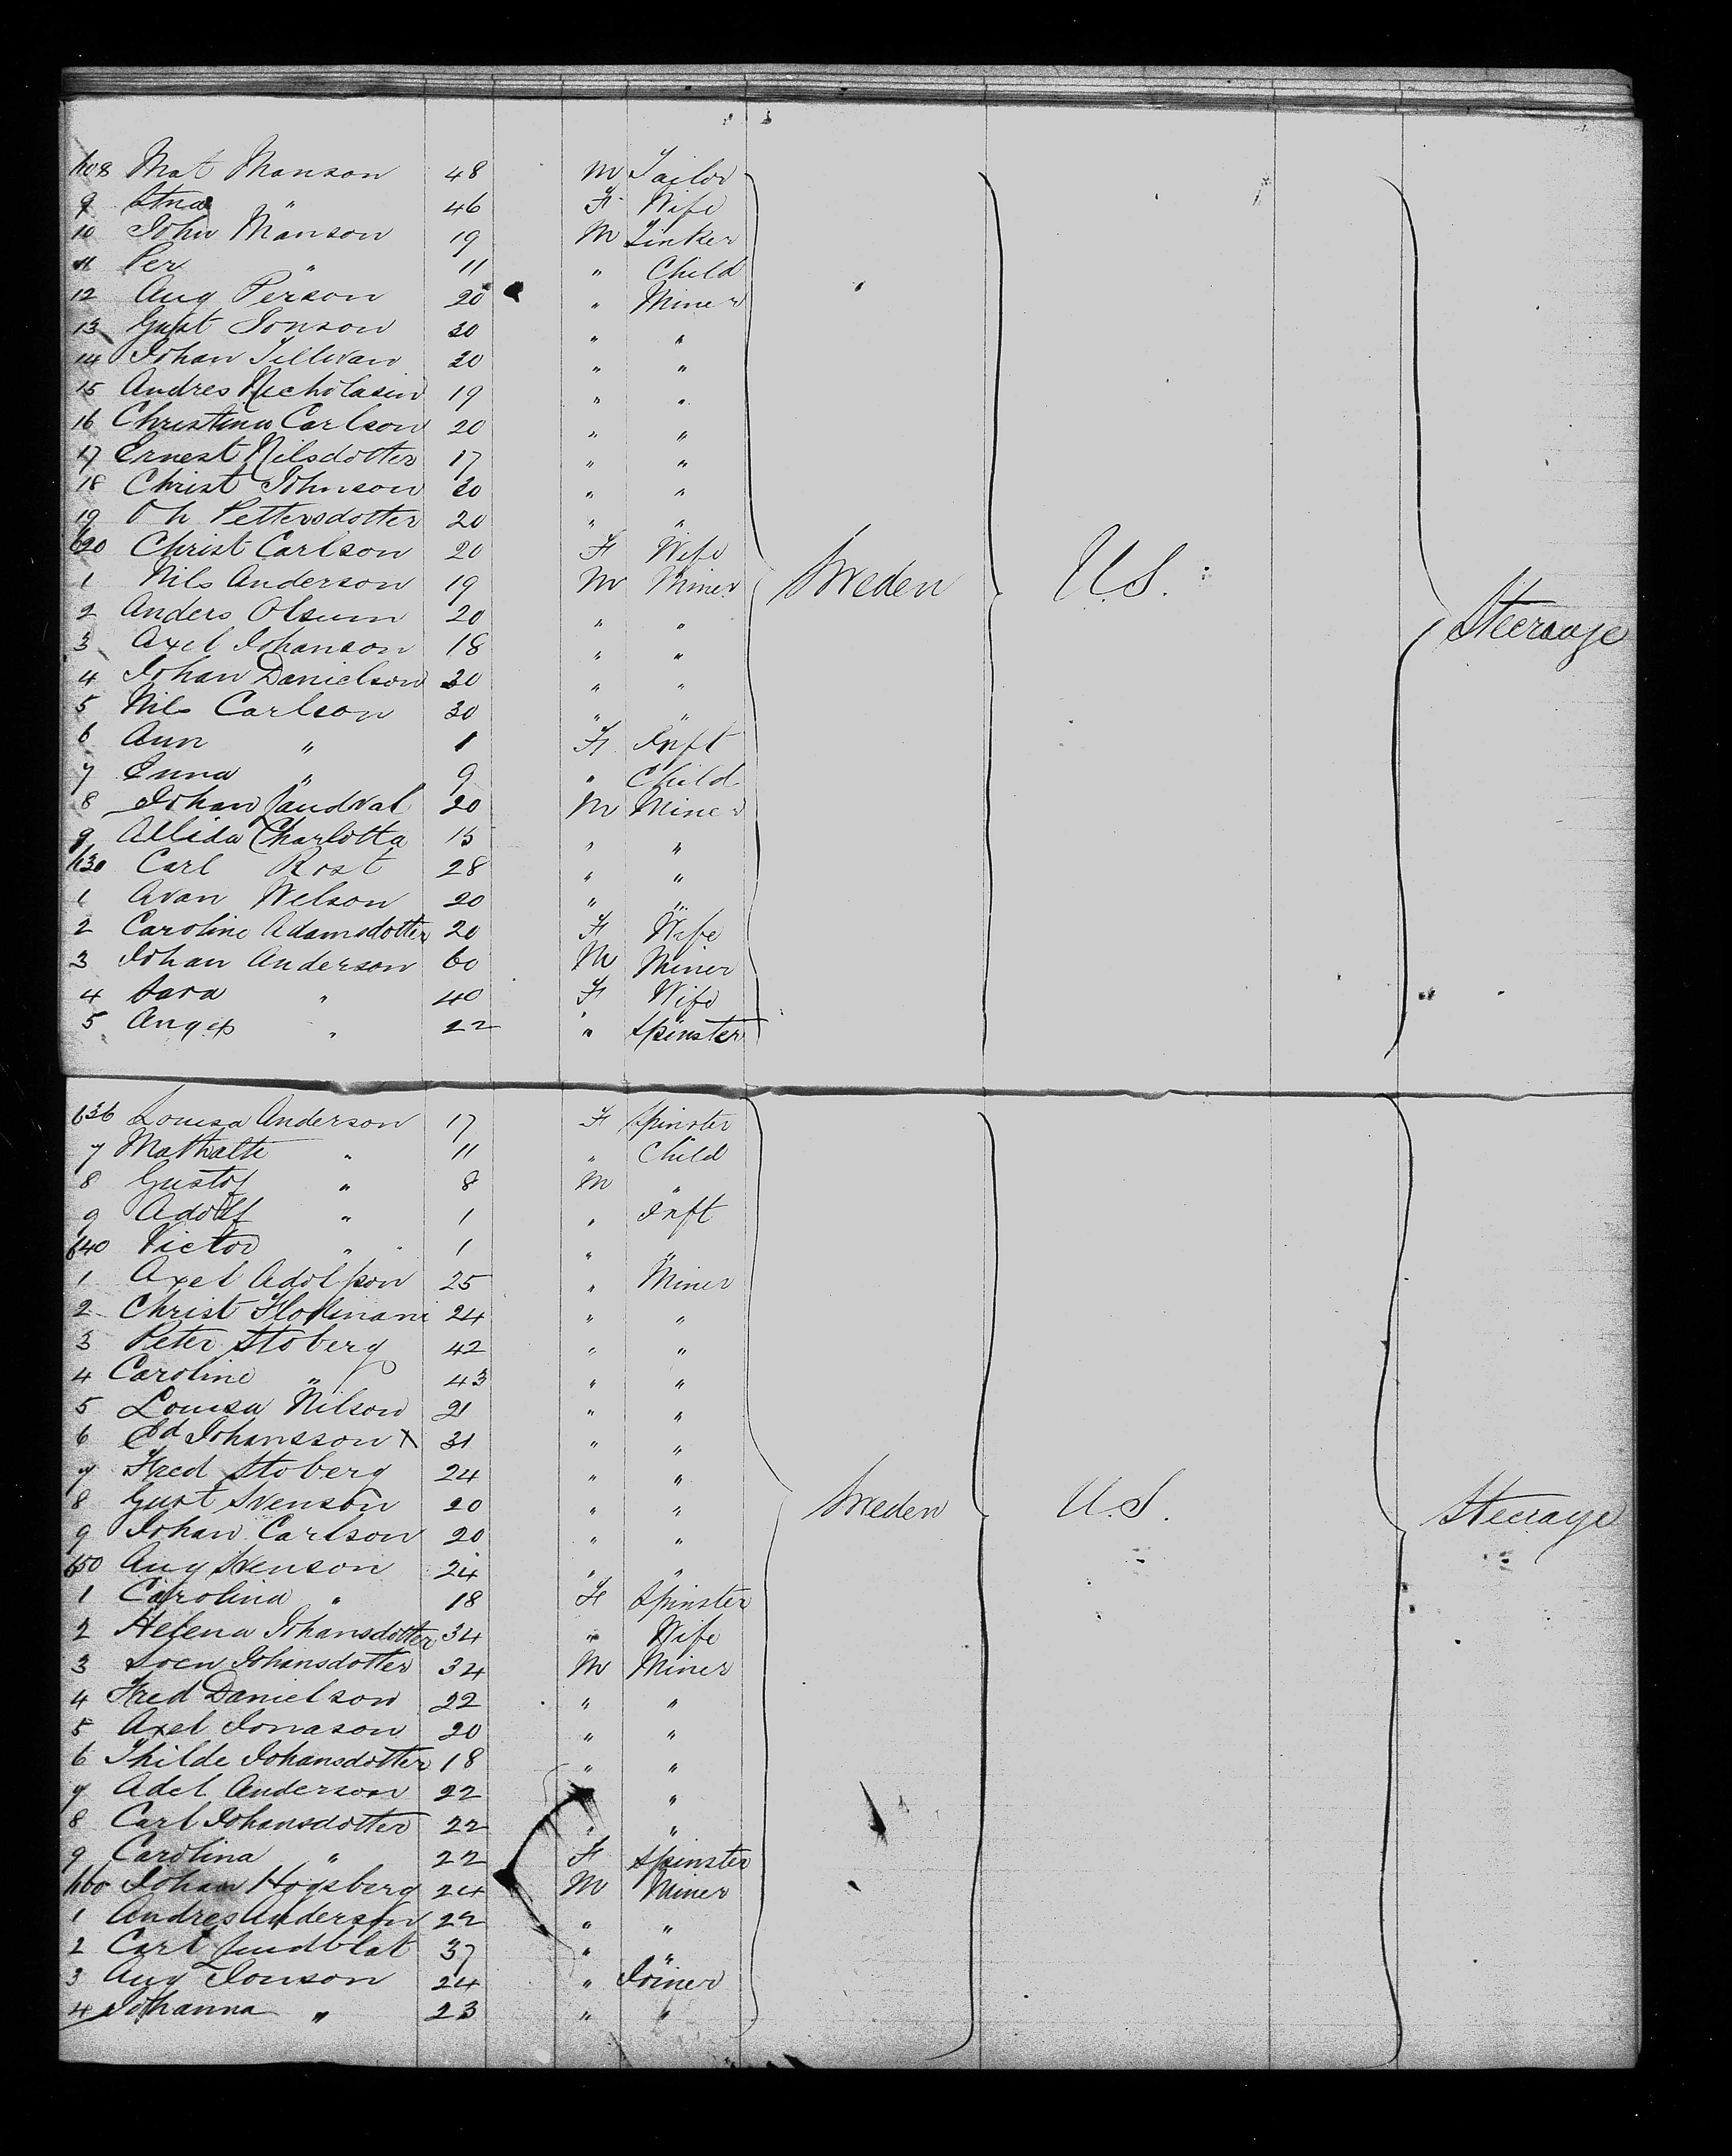 608 Mat Manson 48 M Tailor
9 Stna " 46 F Wife
10 John Manson 19 M Tinker
11 Per " 11 " Child
12 Aug Person 20 " Miner
13 Gust Jonson 30 " "
14 Johan Tillman 20 " "
15 Andres Nicholasin 19 " "
16 Christina Carlson 20 " "
17 Ernest Nilsdotter 17 " "
18 Christ Johnson 20 " "
19 Oh Pettersdotter 20 " "
620 Christ Carlson 20 F Wife
1 Nils Anderson 19 M Miner Sweden U.S.
2 Anders Olsum 20 " "
3 Axel Johanson 18 " " Steerage
4 Johan Danielson 20 " "
5 Nils Carlson 30 " "
6 Ann " 1 F Inft
7 Enna " 9 " Child
8 Johan Sandval 20 M Miner
9 Allida Charlotta 15 " "
630 Carl Rost 28 " "
1 Avan Welson 20 " "
2 Caroline Adamsdotter 20 F Wife
3 Johan Anderson 60 M Miner
4 Sara " 40 F Wife
5 " 22 " Spinster
636 Louisa Anderson 17 F Spinster
7 Mathalte " 11 " Child
8 Gustof " 8 M "
9 Adolf " 1 " Inft
640 Victor " 1 " "
1 Axel Adolfson 25 " Miner
2 Christ 24 " "
3 Peter Stoberg 42 " "
4 Caroline " 43 " "
5 Louisa Nilson 21 " "
6 Ed Johansson X 31 " "
7 Fred Stoberg 24 " "
8 Gust Svenson 20 " " Sweden U.S. Steerage
9 Johan Carlson 20 " "
650 Aug Svenson 24 " "
1 Carolina " 18 F Spinster
2 Helena Johansdotter 34 " Wife
3 Soen Johansdotter 34 M Miner
4 Fred Danielson 22 " "
5 Axel Jonason 20 " "
6 Thilde Johansdotter 18 " "
7 Adel Anderson 22 "
8 Carl Johansdotter 22 " "
9 Carolina " 22 F Spinster
660 Johan Hogsberg 24 M Miner
1 Andres Anderson 22 " "
2 Carl Lindblat 37 " "
3 Aug Jonson 24 " Joiner
4 Johanna " 23 " "